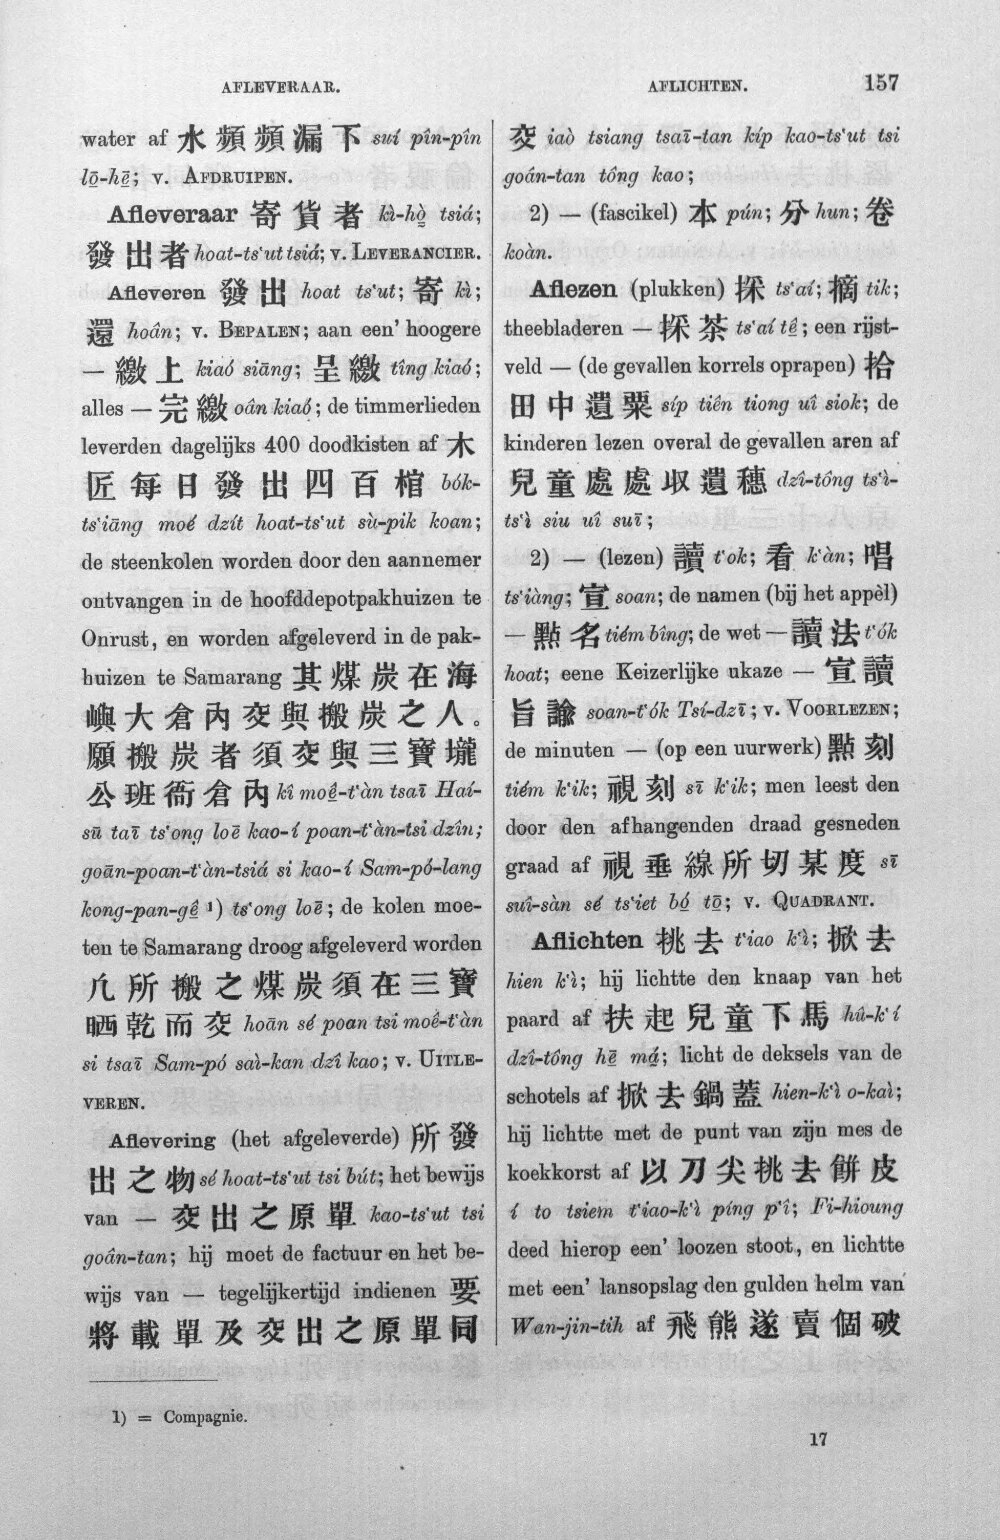 AFLEVERAAR.
AFLICHTEN.
157
water af 水頻頻漏下 suí pîn-pîn
lō̤-hē̤; v. AFDRUIPEN.
Afleveraar 寄貨者 kì-hò̤ tsiá;
發出者 hoat-ts‘ut tsiá; v. LEVERANCIER.
Afleveren 發出 hoat ts‘ut; 寄 kì;
還 hoân; v. BEPALEN; aan een’ hoogere
— 繳上 kiaó siāng; 呈繳 tîng kiaó;
alles — 完繳 oân kiaó; de timmerlieden
leverden dagelijks 400 doodkisten af 木
匠每日發出四百棺 bók-
ts‘iāng moé dzít hoat-ts‘ut sù-pik koan;
de steenkolen worden door den aannemer
ontvangen in de hoofddepotpakhuizen te
Onrust, en worden afgeleverd in de pak-
huizen te Samarang 其煤炭在海
嶼大倉內交與搬炭之人。
願搬炭者須交與三寶壠
公班衙倉內 kî moê̤-t‘àn tsaī Haí-
sū taī ts‘ong loē kao-í poan-t‘àn-tsi dzîn;
goān-poan-t‘àn-tsiá si kao-í Sam-pó-lang
kong-pan-gê̤ ¹) ts‘ong loē; de kolen moe-
ten te Samarang droog afgeleverd worden
凡所搬之煤炭須在三寶
晒乾而交 hoān sé poan tsi moê-t‘àn
si tsaī Sam-pó saì-kan dzî kao; v. UITLE-
VEREN.
Aflevering (het afgeleverde) 所發
出之物 sé hoat-ts‘ut tsi bút; het bewijs
van — 交出之原單 kao-ts‘ut tsi
goân-tan; hij moet de factuur en het be-
wijs van — tegelijkertijd indienen 要
將載單及交出之原單同
1) = Compagnie.
交 iaò tsiang tsaī-tan kíp kao-ts‘ut tsi
goán-tan tông kao;
2) — (fascikel) 本 pún; 分 hun; 卷
koàn.
Aflezen (plukken) 採 ts‘aí; 摘 tik;
theebladeren — 採茶 ts‘aí tê̤; een rijst-
veld — (de gevallen korrels oprapen) 拾
田中遺粟 síp tiên tiong uî siok; de
kinderen lezen overal de gevallen aren af
兒童處處收遺穗 dzî-tông ts‘ì-
ts‘ì siu uî suī;
2) — (lezen) 讀 t‘ok; 看 k‘àn; 唱
ts‘iàng; 宣 soan; de namen (bij het appèl)
— 點名 tiém bîng; de wet — 讀法 t‘ók
hoat; eene Keizerlijke ukaze — 宣讀
旨諭 soan-t‘ók Tsí-dzī; v. VOORLEZEN;
de minuten — (op een uurwerk) 點刻
tiém k‘ik; 視刻 sī k‘ik; men leest den
door den afhangenden draad gesneden
graad af 視垂線所切某度 sī
suî-sàn sé ts‘iet bó̤ tō̤; v. QUADRANT.
Aflichten 挑去 t‘iao k‘ì; 掀去
hien k‘ì; hij lichtte den knaap van het
paard af 扶起兒童下馬 hû-k‘í
dzî-tông hē̤ má̤; licht de deksels van de
schotels af 掀去鍋蓋 hien-k‘ì o-kaì;
hij lichtte met de punt van zijn mes de
koekkorst af 以刀尖挑去餅皮
í to tsiem t‘iao-k‘ì píng p‘î; Fi-hioung
deed hierop een’ loozen stoot, en lichtte
met een’ lansopslag den gulden helm van
Wan-jin-tih af 飛熊遂賣個破
17